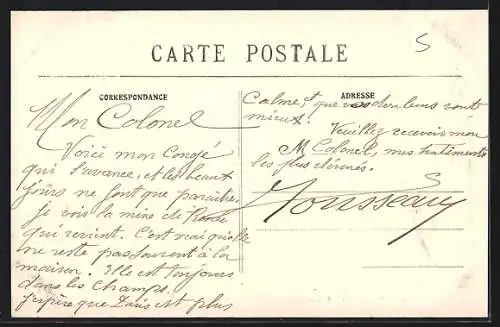 CARTE POSTALE
5
CORRESPONDANCE
ADRESSE
Mon Colonel
Voici mon Congé
qui s'avance, et les beaux
jours ne font que paraitre.
je vois la mine de
qui revient. C'est vrai qu'elle
ne reste pas souvent à la
maison. Elle est toujours
dans les Champs.
j'espère que Paris est plus
Calme, et que vos douleurs vont
mieux.
Veuillez recevoir mon
Colonel, mes sentiments
les plus dévoués.
Tousseau